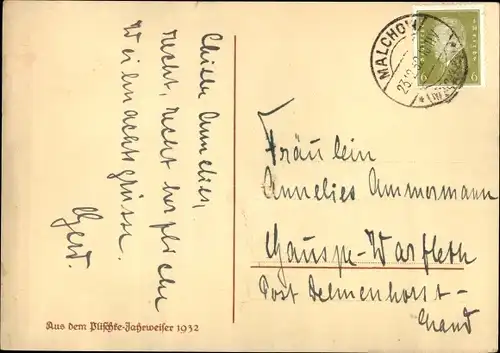 Chille Annelies,
recht, recht herzliche
Weihnachtsgrüsse.
Gerd.
Aus dem Plischke-Jahrweiser 1932
MALCHOW
Deutsches Reich
6 6
Fräulein
Annelies Ammermann
Gauspe-Warfleth
Post Delmenhorst-
Land